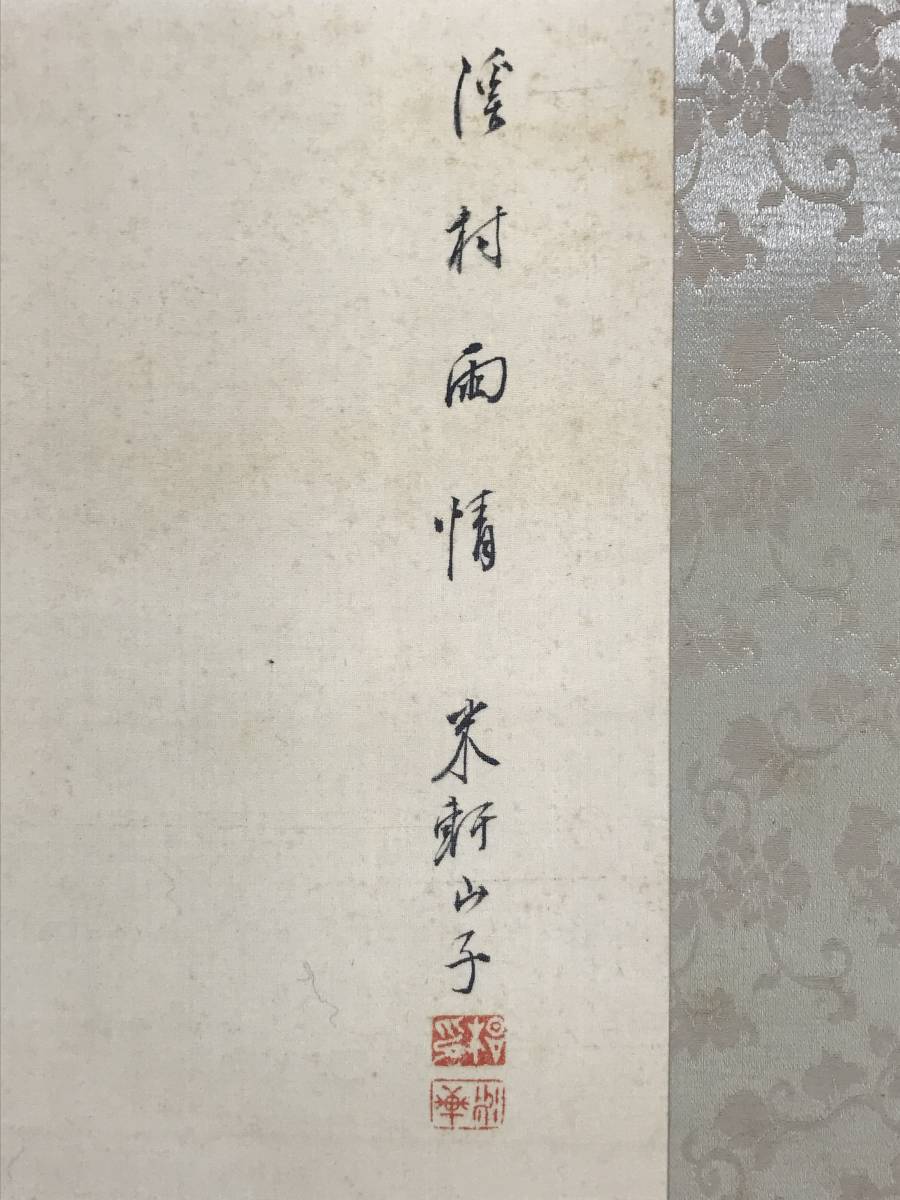 渓村雨情 米軒山子